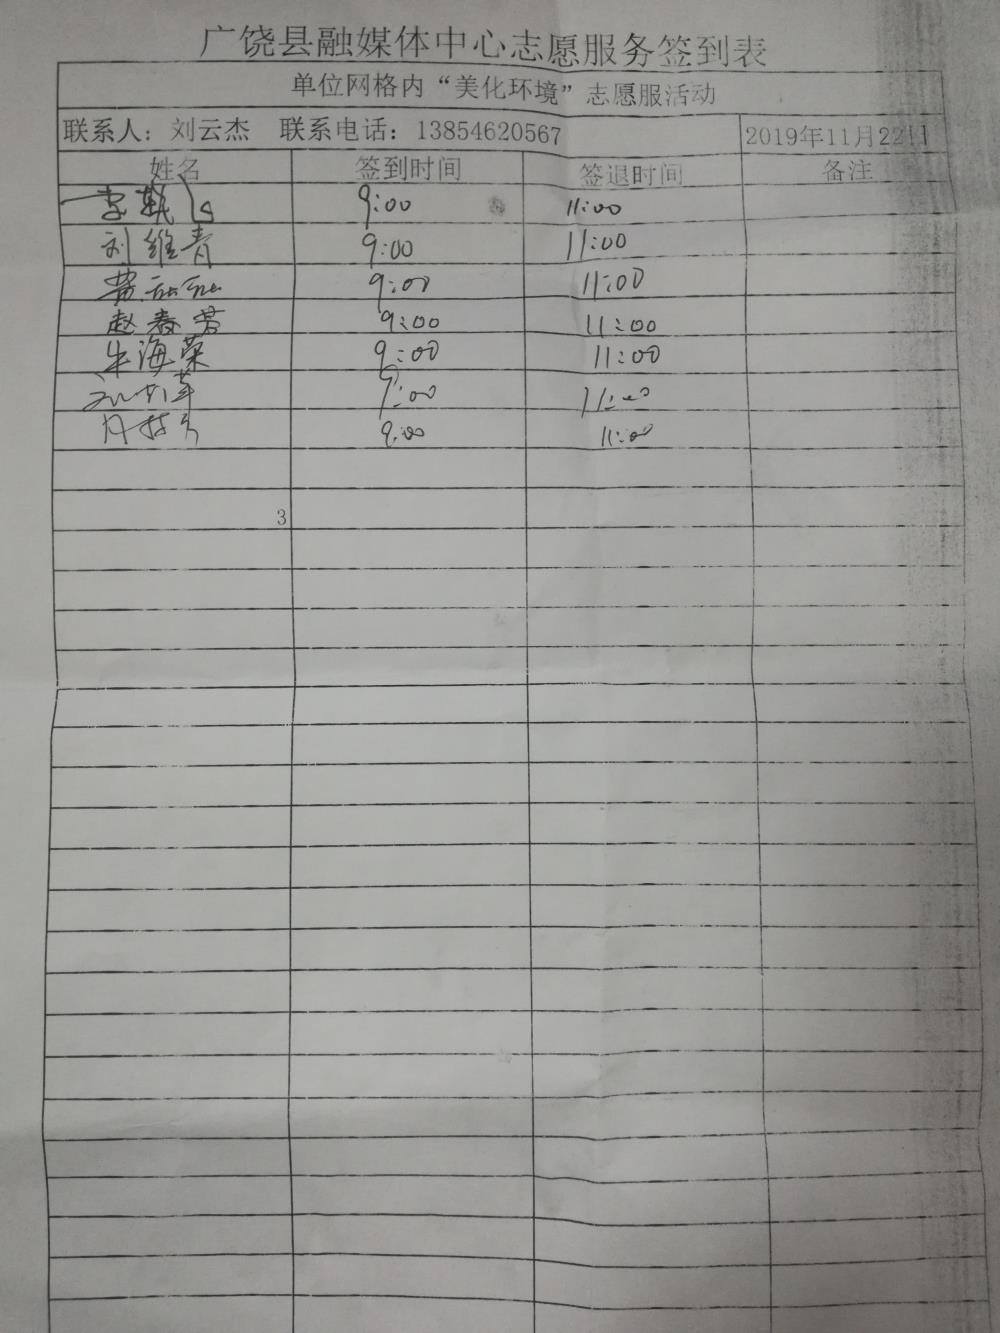 广饶县融媒体中心志愿服务签到表
单位网格内“美化环境”志愿服活动
联系人：刘云杰 联系电话：13854620567 2019年11月22日
姓名 签到时间 签退时间 备注
9:00 11:00
刘维青 9:00 11:00
9:00 11:00
赵春芳 9:00 11:00
朱海荣 9:00 11:00
9:00 11:00
9:00 11:00
3